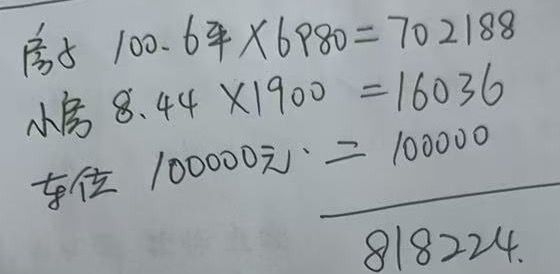 房子 100.6平×6980=702188
小房 8.44×1900=16036
车位 100000元.=100000
818224.